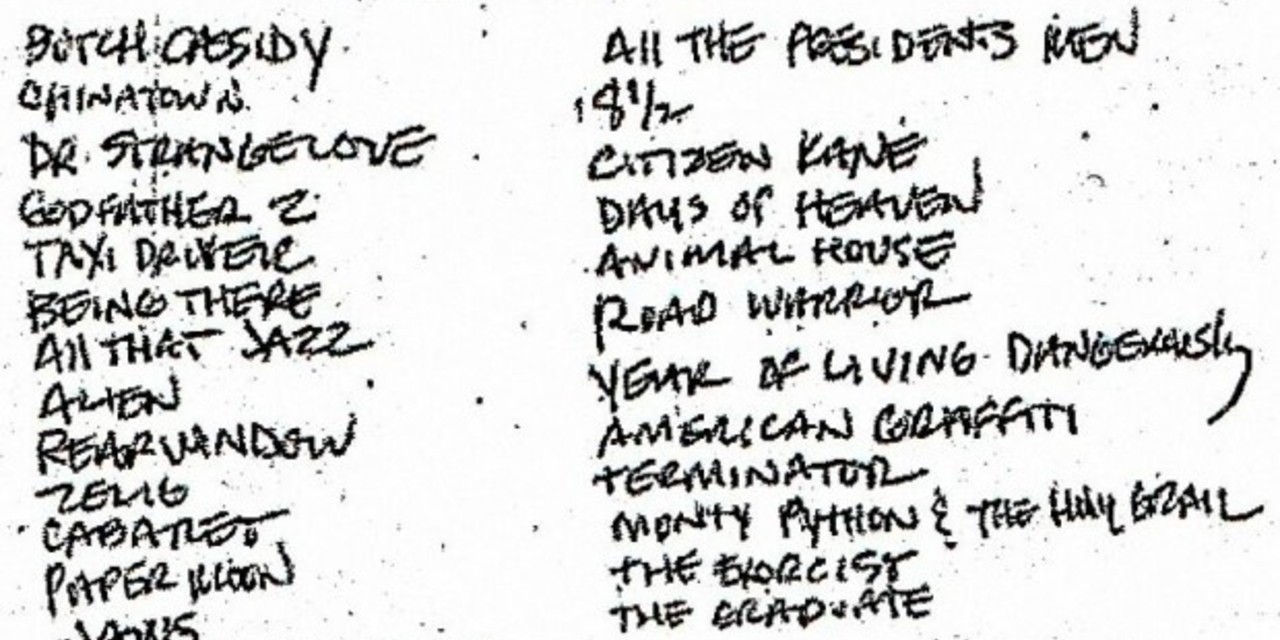 BUTCH CASSIDY
CHINATOWN
DR. STRANGELOVE
GODFATHER 2
TAXI DRIVER
BEING THERE
All THAT JAZZ
ALIEN
REAR WINDOW
ZELIG
CABARET
PAPER MOON
JAWS
All THE PRESIDENTS MEN
8 1/2
CITIZEN KANE
DAYS OF HEAVEN
ANIMAL HOUSE
ROAD WARRIOR
YEAR OF LIVING DANGEROUSLY
AMERICAN GRAFFITI
TERMINATOR
MONTY PYTHON & THE HOLY GRAIL
THE EXORCIST
THE GRADUATE